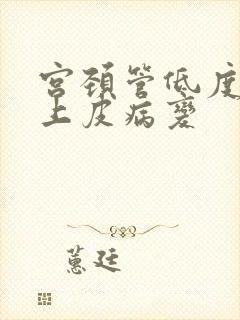 宫颈管低度
上皮病变
蕙廷